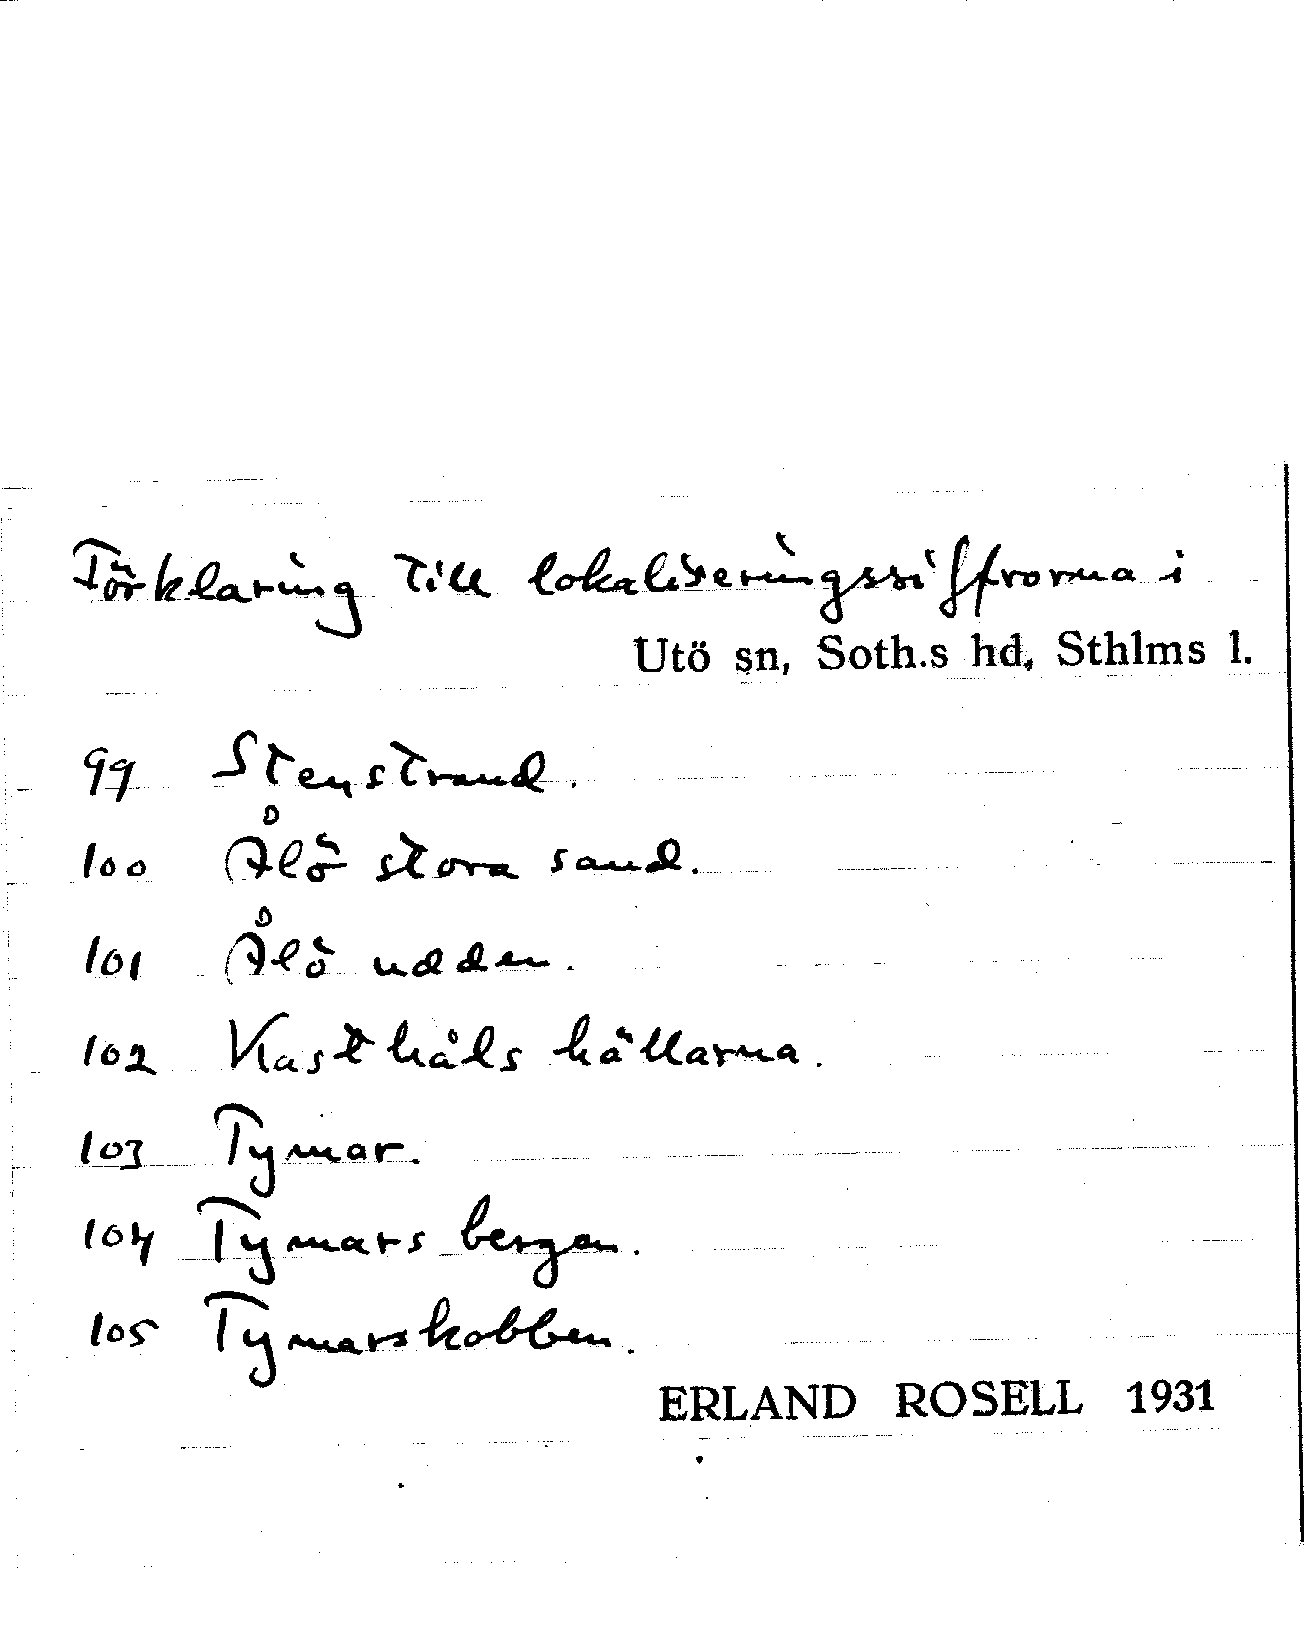 Förklaring till lokaliseringssiffrorna i
Utö sn, Soth.s hd, Sthlms l.
99 Stenstrand.
100 Ålö stora sand.
101 Ålö udden.
102 Kasthåls hällarna.
103 Tymar.
104 Tymars bergen.
105 Tymarskobben.
ERLAND ROSELL 1931